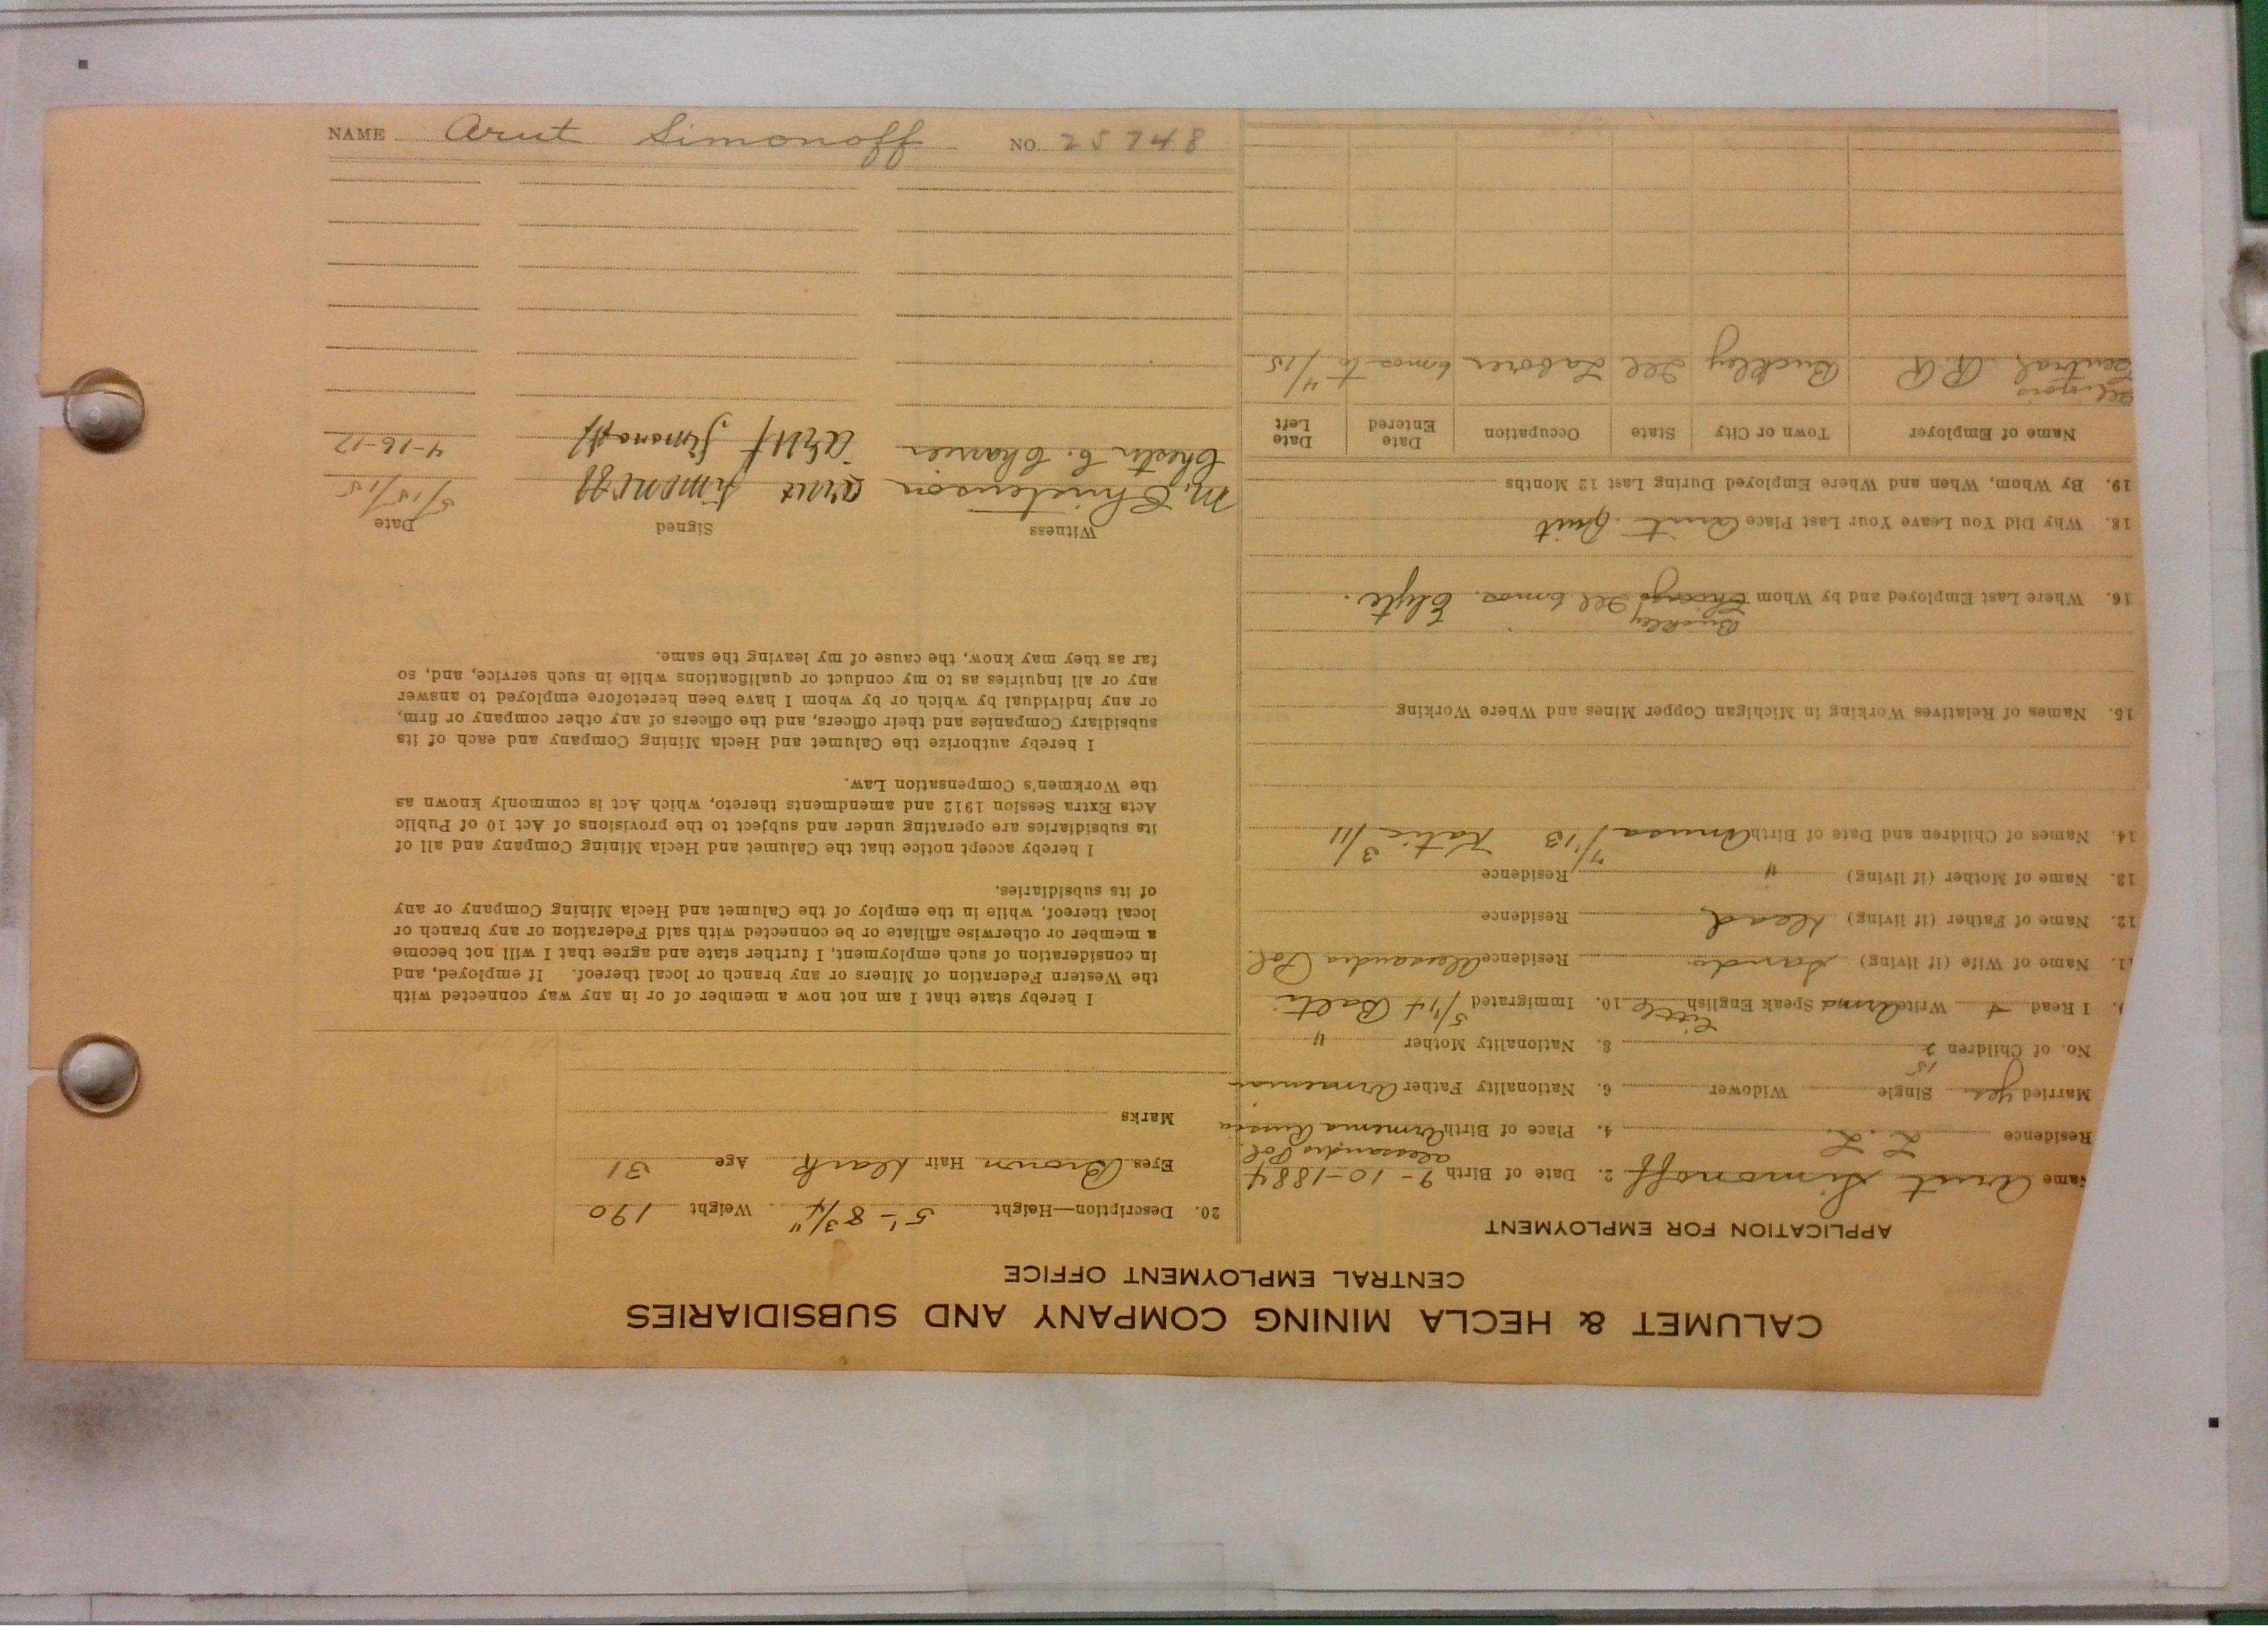 NAME Arut Simonoff NO. 25748
CALUMET & HECLA MINING COMPANY AND SUBSIDIARIES
CENTRAL EMPLOYMENT OFFICE
APPLICATION FOR EMPLOYMENT
Name Arut Simonoff 2. Date of Birth 9-10-1884
Alexandro Pol.
Residence L. L. 4. Place of Birth Armenia Russia
Married yes Single Widower 6. Nationality Father Armenian
15
No. of Children 2 8. Nationality Mother "
9. I Read + Write Arme Speak English Little 10. Immigrated 5/14 Balti
11. Name of Wife (if living) Sanda Residence Alexandro Pol
12. Name of Father (if living) Dead Residence
13. Name of Mother (if living) " Residence
14. Names of Children and Date of Birth Anusa 7/13 Katie 3/11
15. Names of Relatives Working in Michigan Copper Mines and Where Working
Buckley
16. Where Last Employed and by Whom Chicago Ill 6 mos. Clyte.
18. Why Did You Leave Your Last Place Arut Quit
19. By Whom, When and Where Employed During Last 12 Months
Name of Employer Town or City State Occupation Date Entered Date Left
Illinois Central R.R. Buckley Ill Laborer 6 mos to 4/15
20. Description—Height 5'-8 3/4" Weight 190
Eyes Brown Hair Dark Age 31
Marks
I hereby state that I am not now a member of or in any way connected with
the Western Federation of Miners or any branch or local thereof. If employed, and
in consideration of such employment, I further state and agree that I will not become
a member or otherwise affiliate or be connected with said Federation or any branch or
local thereof, while in the employ of the Calumet and Hecla Mining Company or any
of its subsidiaries.
I hereby accept notice that the Calumet and Hecla Mining Company and all of
its subsidiaries are operating under and subject to the provisions of Act 10 of Public
Acts Extra Session 1912 and amendments thereto, which Act is commonly known as
the Workmen's Compensation Law.
I hereby authorize the Calumet and Hecla Mining Company and each of its
subsidiary Companies and their officers, and the officers of any other company or firm,
or any individual by which or by whom I have been heretofore employed to answer
any or all inquiries as to my conduct or qualifications while in such service, and, so
far as they may know, the cause of my leaving the same.
Witness Signed Date
M. Christenson Arut Simonoff 5/15/15
Chester C. Charrier Arut Simonoff 4-16-17